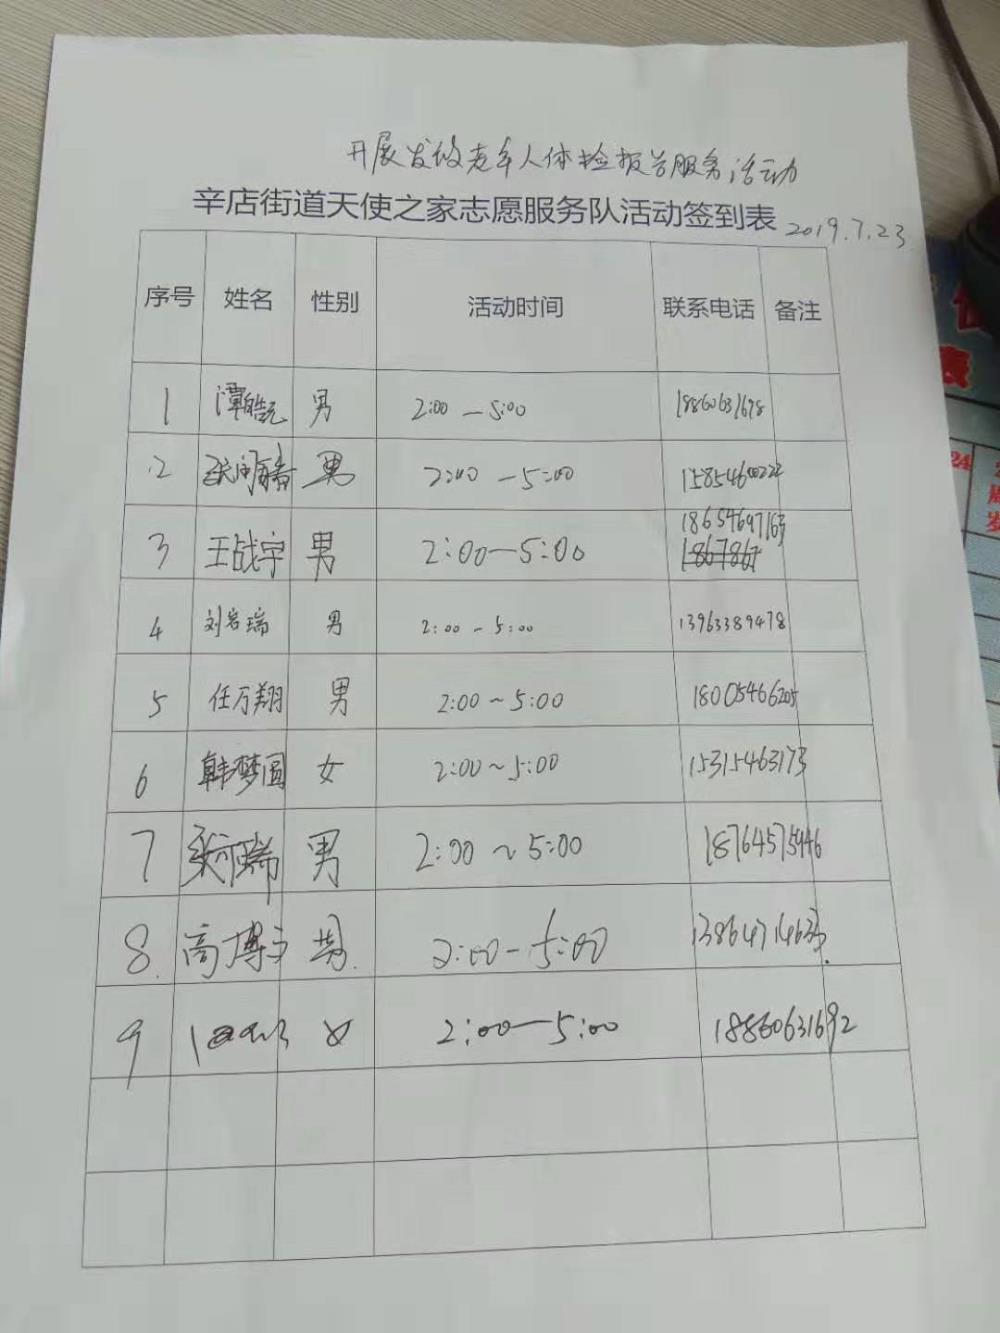 开展发放老年人体检报告服务活动
辛店街道天使之家志愿服务队活动签到表 2019.7.23
序号 姓名 性别 活动时间 联系电话 备注
1 谭皓元 男 2:00—5:00 18860631678
2 男 2:00—5:00 15854600222
3 王战宇 男 2:00—5:00 18654697163
1867867
4 刘岩瑞 男 2:00-5:00 13963389478
5 任万翔 男 2:00~5:00 18005466205
6 韩梦圆 女 2:00~5:00 15315463173
7 男 2:00~5:00 18764575946
8. 高博 男. 2:00-5:00
9 女 2:00—5:00 18860631692
24
表